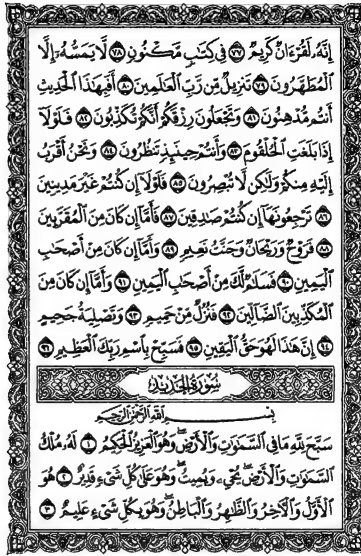 إِنَّهُۥ لَقُرْءَانٌ كَرِيمٌ ٧٧ فِى كِتَـٰبٍ مَّكْنُونٍ ٧٨ لَّا يَمَسُّهُۥٓ إِلَّا
ٱلْمُطَهَّرُونَ ٧٩ تَنزِيلٌ مِّن رَّبِّ ٱلْعَـٰلَمِينَ ٨٠ أَفَبِهَـٰذَا ٱلْحَدِيثِ
أَنتُم مُّدْهِنُونَ ٨١ وَتَجْعَلُونَ رِزْقَكُمْ أَنَّكُمْ تُكَذِّبُونَ ٨٢ فَلَوْلَآ
إِذَا بَلَغَتِ ٱلْحُلْقُومَ ٨٣ وَأَنتُمْ حِينَئِذٍ تَنظُرُونَ ٨٤ وَنَحْنُ أَقْرَبُ
إِلَيْهِ مِنكُمْ وَلَـٰكِن لَّا تُبْصِرُونَ ٨٥ فَلَوْلَآ إِن كُنتُمْ غَيْرَ مَدِينِينَ
٨٦ تَرْجِعُونَهَآ إِن كُنتُمْ صَـٰدِقِينَ ٨٧ فَأَمَّآ إِن كَانَ مِنَ ٱلْمُقَرَّبِينَ
٨٨ فَرَوْحٌ وَرَيْحَانٌ وَجَنَّتُ نَعِيمٍ ٨٩ وَأَمَّآ إِن كَانَ مِنْ أَصْحَـٰبِ
ٱلْيَمِينِ ٩٠ فَسَلَـٰمٌ لَّكَ مِنْ أَصْحَـٰبِ ٱلْيَمِينِ ٩١ وَأَمَّآ إِن كَانَ مِنَ
ٱلْمُكَذِّبِينَ ٱلضَّآلِّينَ ٩٢ فَنُزُلٌ مِّنْ حَمِيمٍ ٩٣ وَتَصْلِيَةُ جَحِيمٍ
٩٤ إِنَّ هَـٰذَا لَهُوَ حَقُّ ٱلْيَقِينِ ٩٥ فَسَبِّحْ بِٱسْمِ رَبِّكَ ٱلْعَظِيمِ ٩٦
سُورَةُ الحَدِيد
بِسْمِ ٱللَّهِ ٱلرَّحْمَـٰنِ ٱلرَّحِيمِ
سَبَّحَ لِلَّهِ مَا فِى ٱلسَّمَـٰوَٰتِ وَٱلْأَرْضِ ۖ وَهُوَ ٱلْعَزِيزُ ٱلْحَكِيمُ ١ لَهُۥ مُلْكُ
ٱلسَّمَـٰوَٰتِ وَٱلْأَرْضِ ۖ يُحْىِۦ وَيُمِيتُ ۖ وَهُوَ عَلَىٰ كُلِّ شَىْءٍ قَدِيرٌ ٢ هُوَ
ٱلْأَوَّلُ وَٱلْـَٔاخِرُ وَٱلظَّـٰهِرُ وَٱلْبَاطِنُ ۖ وَهُوَ بِكُلِّ شَىْءٍ عَلِيمٌ ٣